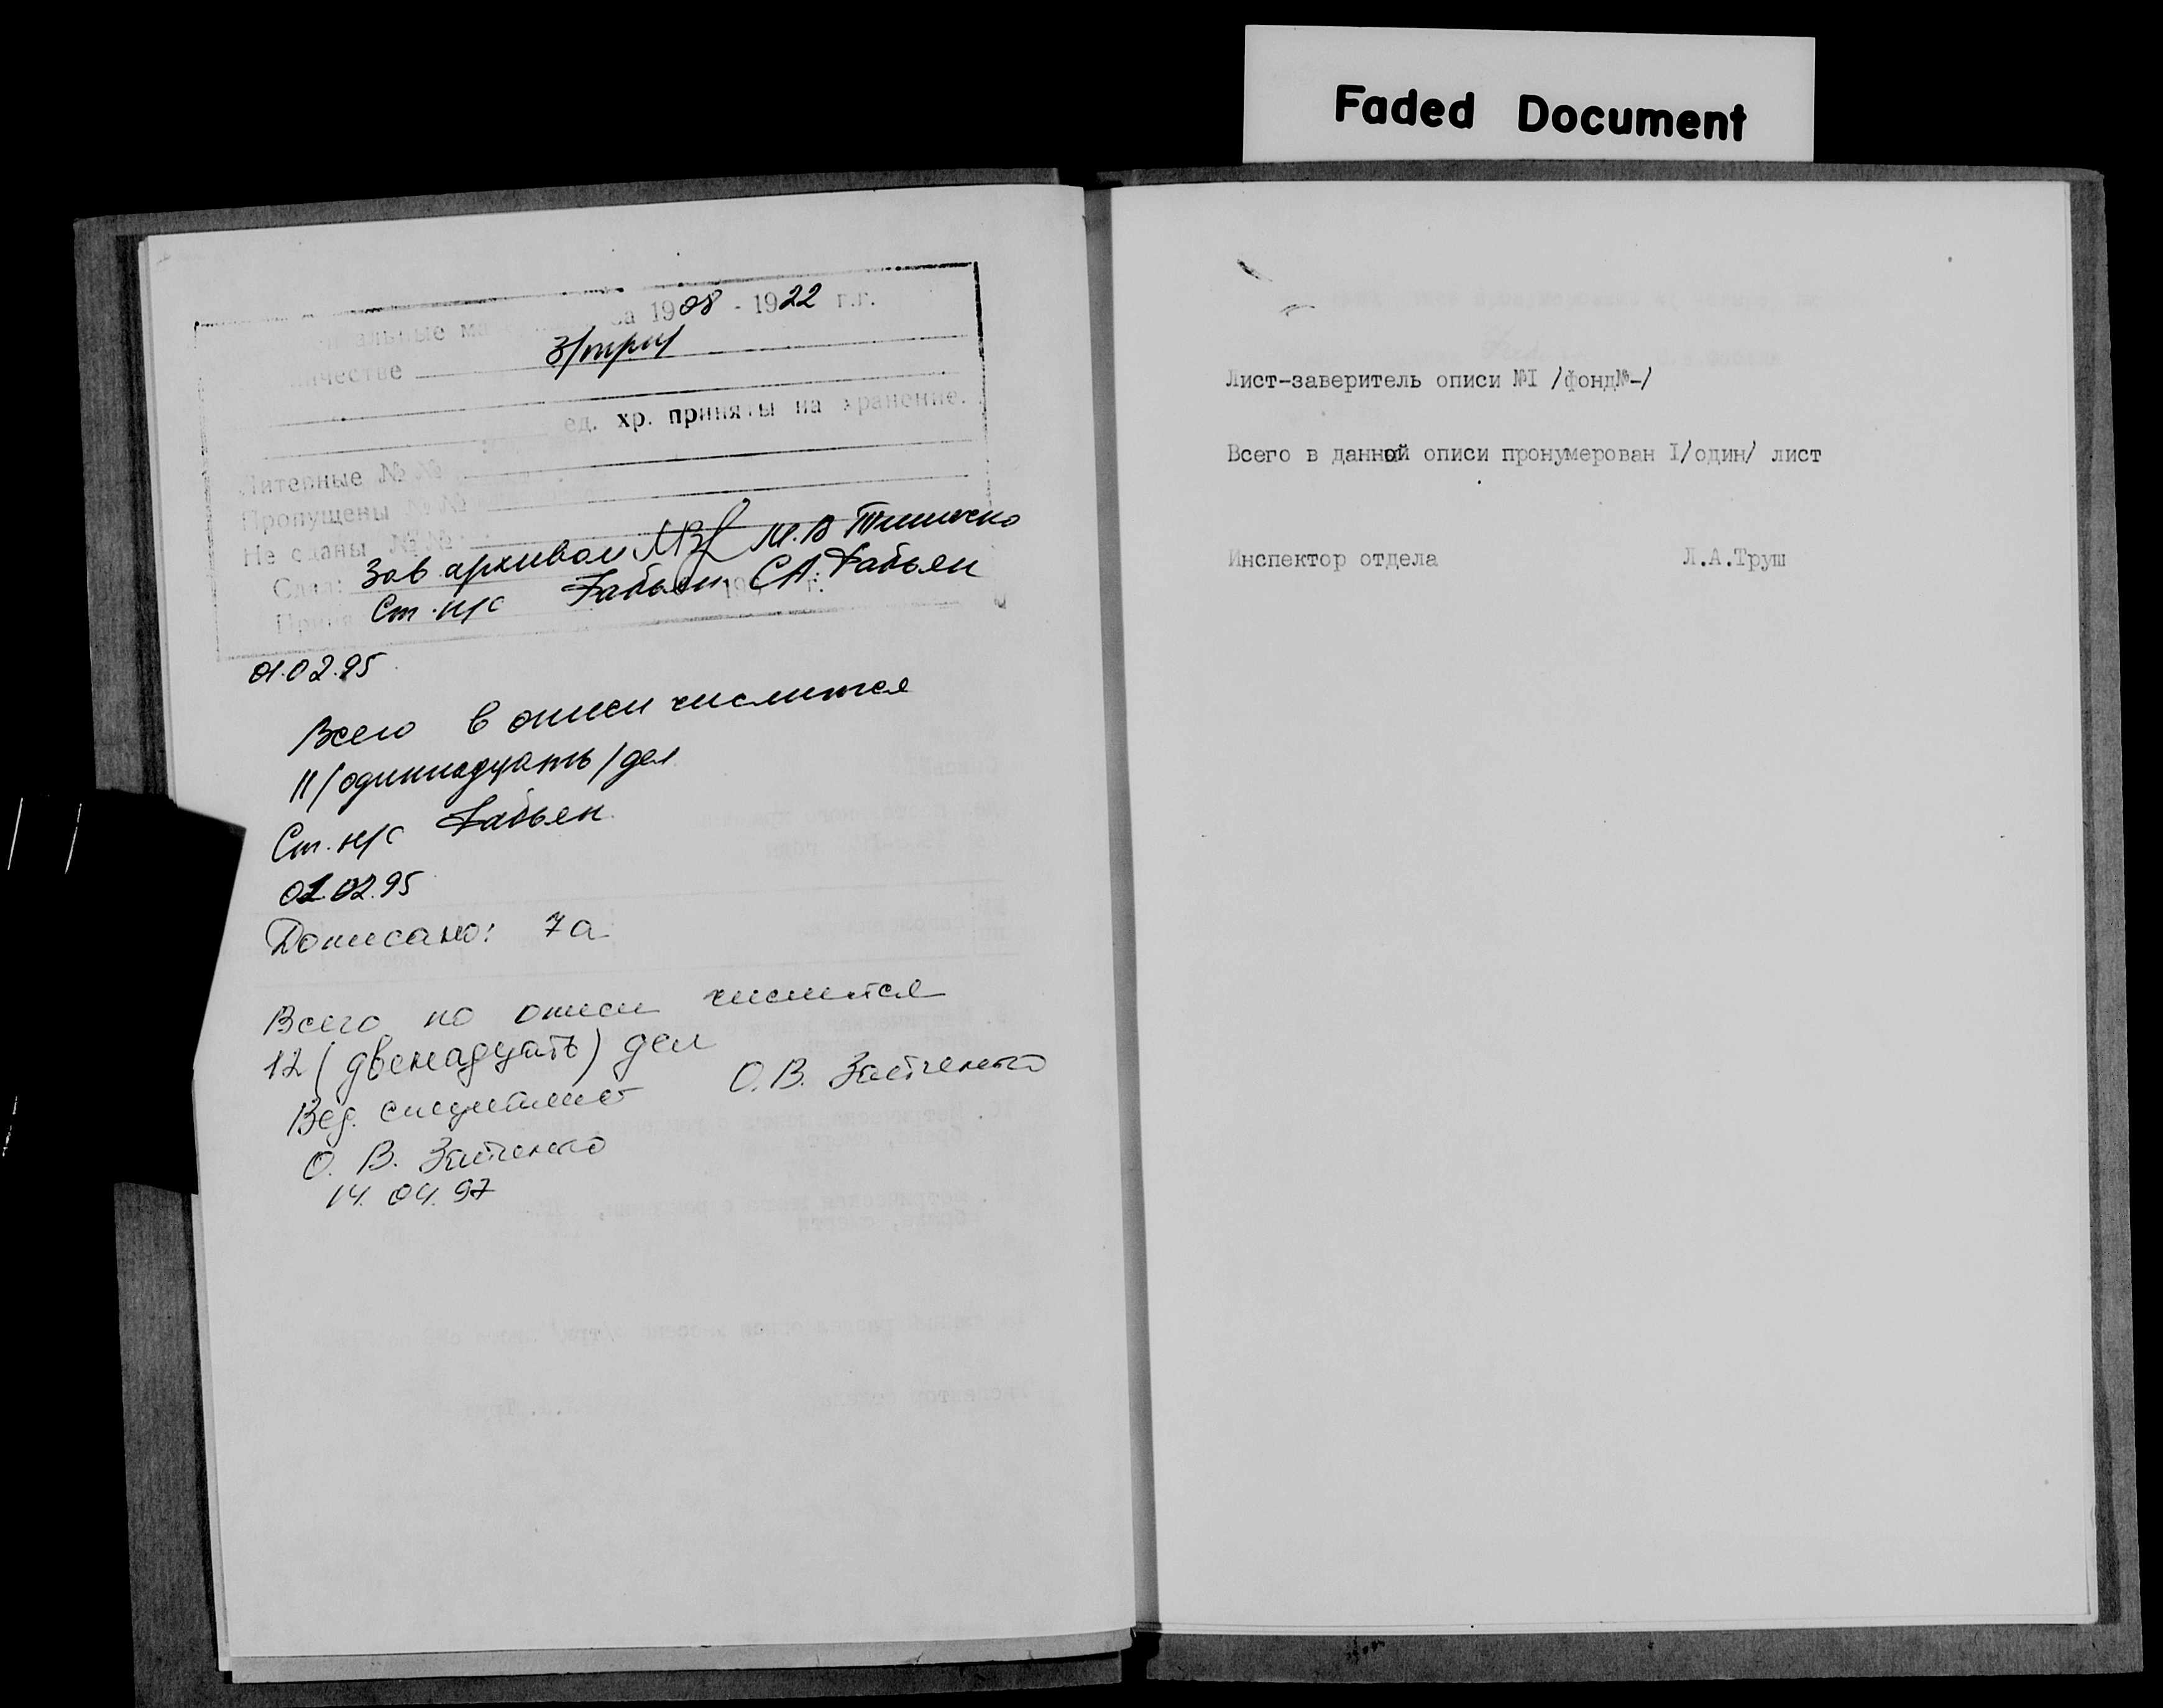 Faded Document
за 1908 - 1922 г.г.
3/три/
ед. хр. приняты на хранение.
Литерные №№
Пропущены №№
Не сданы №№
Сдал: Зав. архивом М.В.
Ст. н/с С.А.
01.02.95
Всего в описи числится
11/одиннадцать/дел
Ст. н/с
01.02.95
Дописано: 7а
Всего по описи числится
12 (двенадцать) дел
Вед. специалист О.В. Зайченко
О. В. Зайченко
14.04.97
Лист-заверитель описи №I /фонд№-/
Всего в данной описи пронумерован I/один/ лист
Инспектор отдела Л.А.Труш